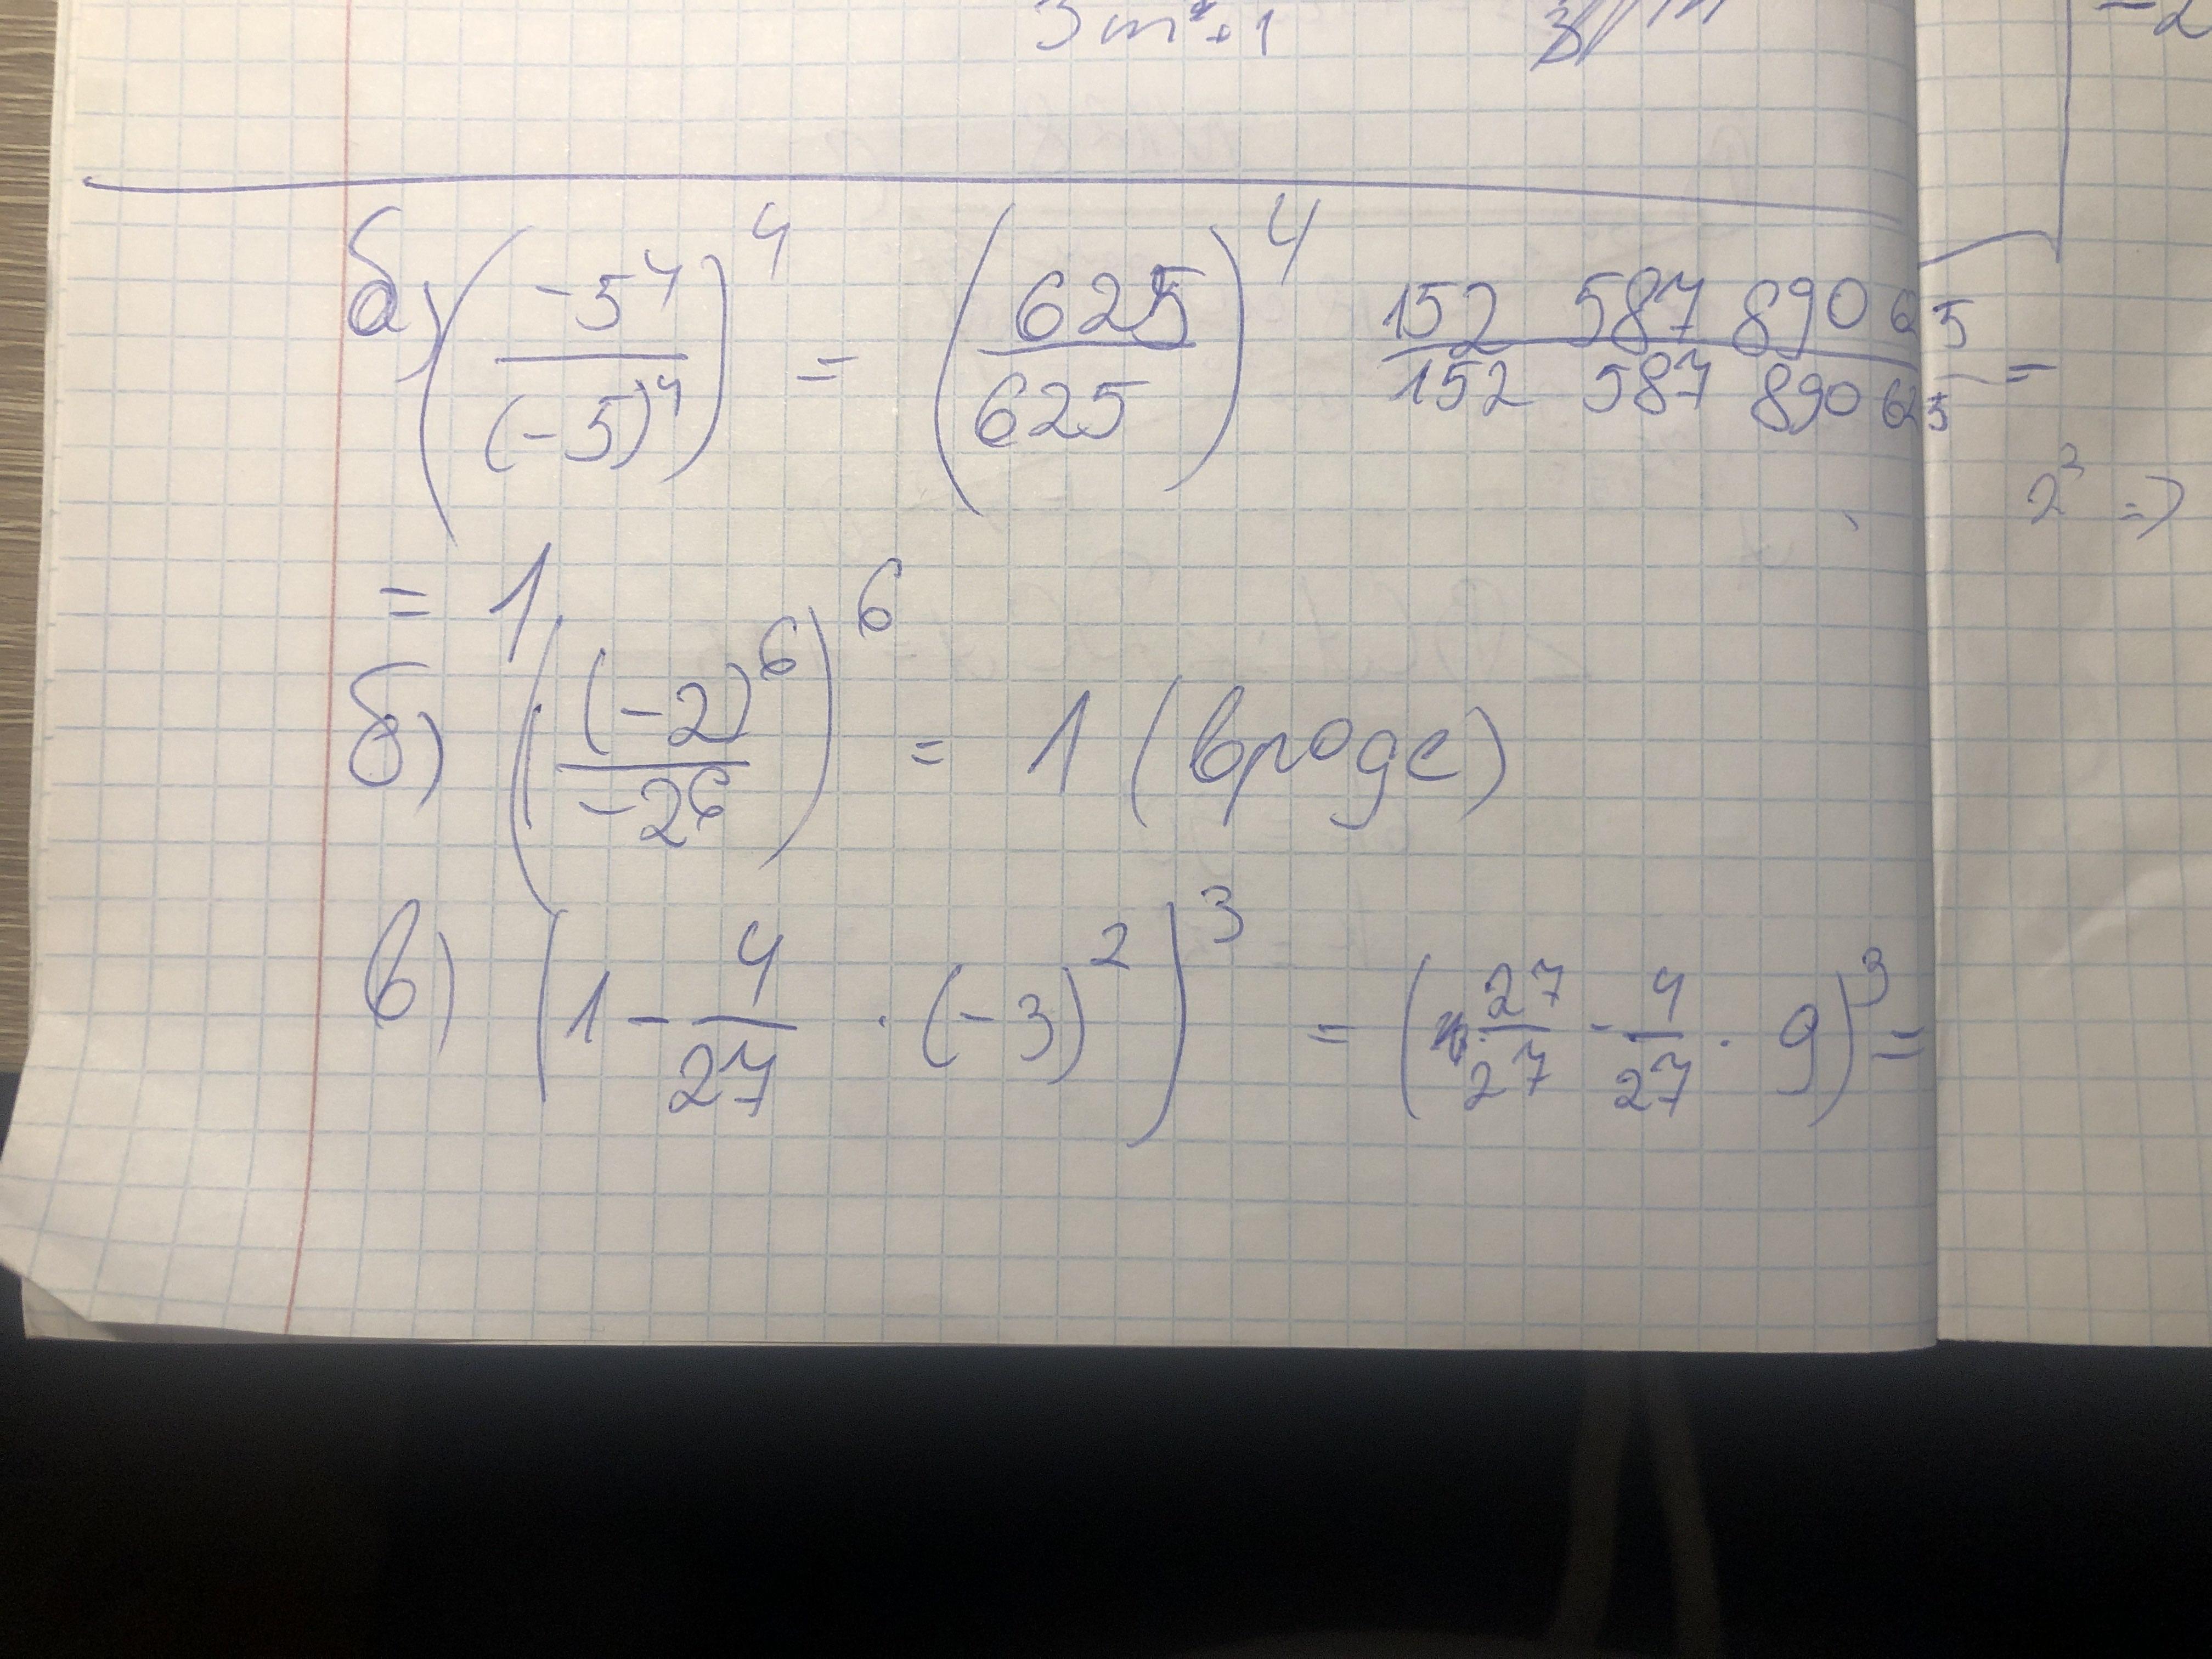 3m²+1
-2
б) (-5⁴/(-5)⁴)⁴ = (625/625)⁴ 152 587 890 625/152 587 890 625 =
2³ =>
= 1
б) ((-2)⁶/-2⁶)⁶ = 1 (вроде)
в) (1 - 4/27 · (-3)²)³ = (27/27 - 4/27 · 9)³ =